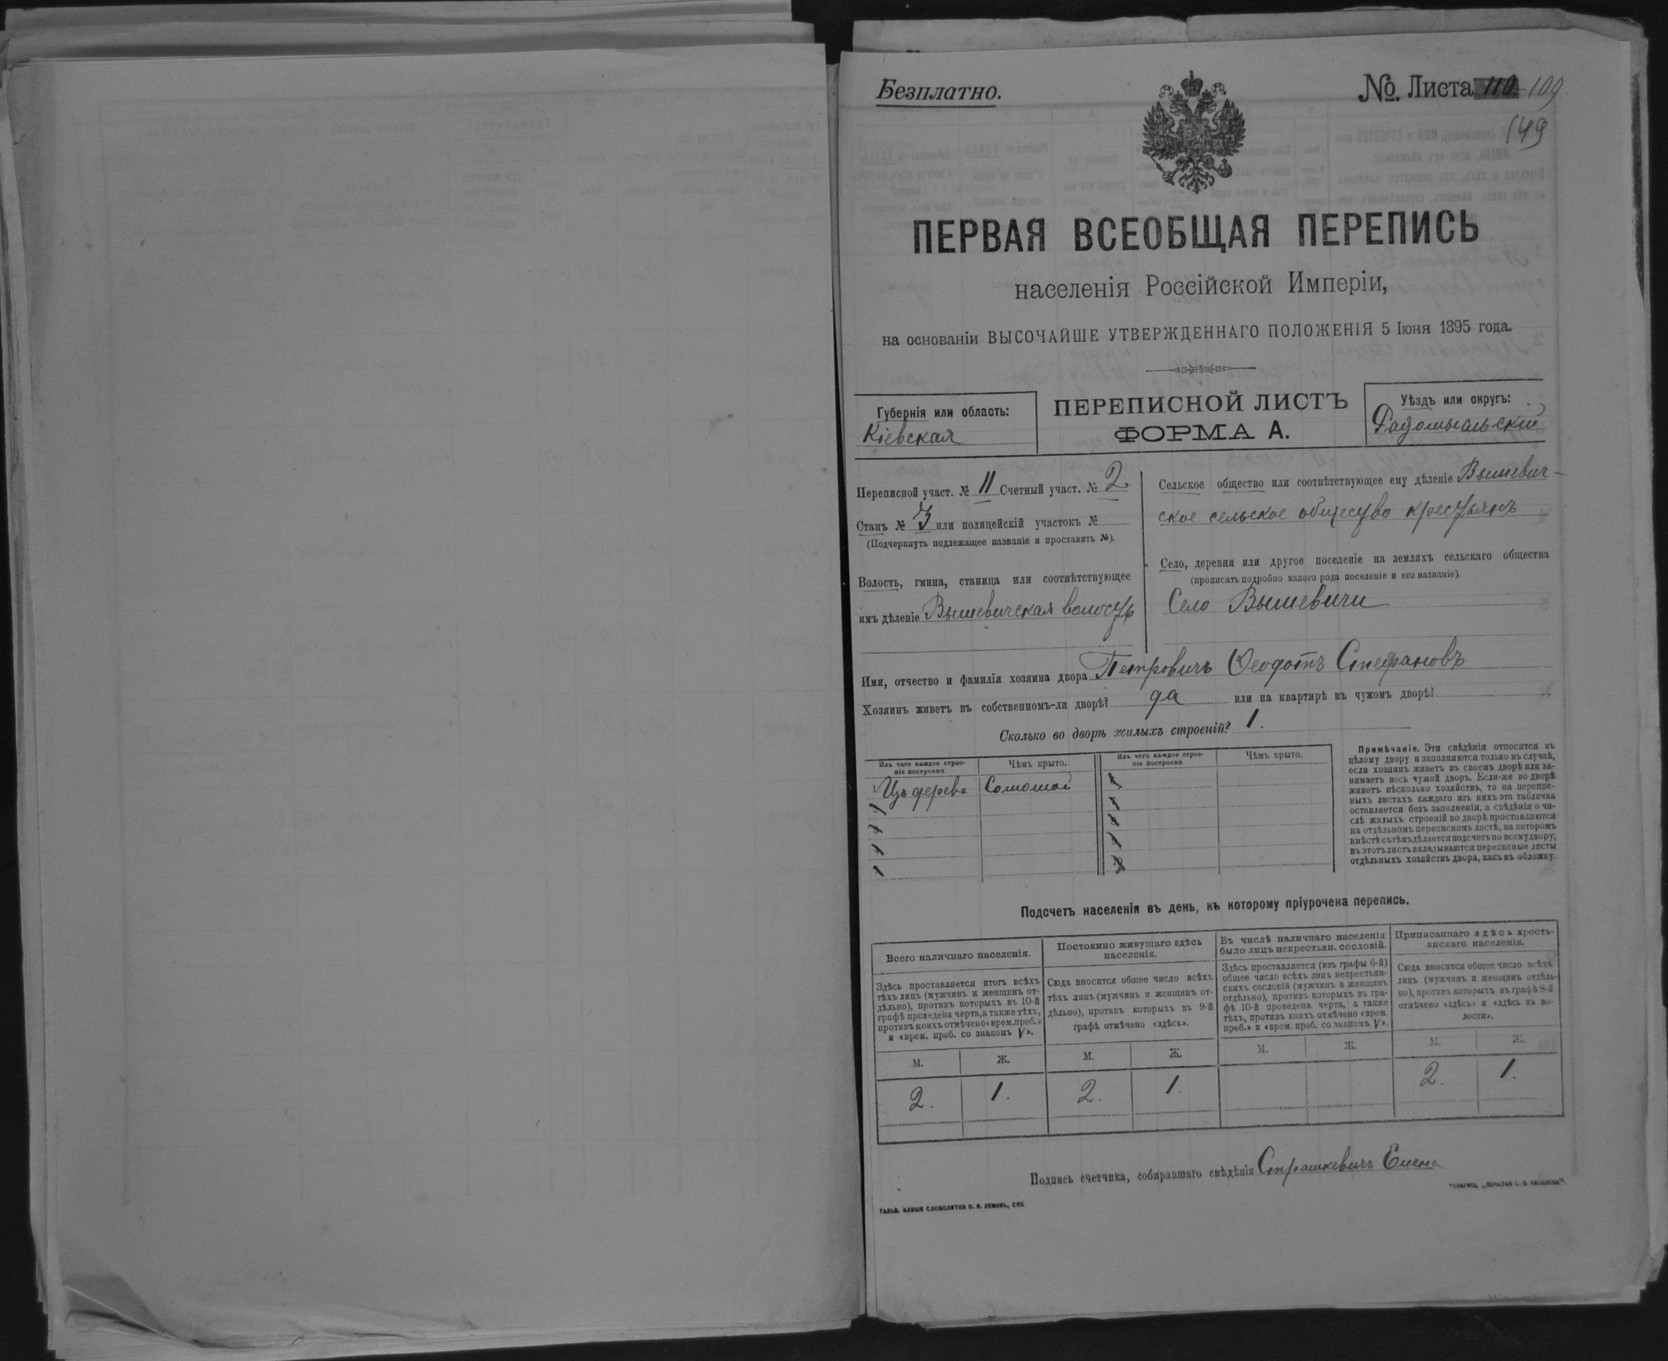 Безплатно.
№. Листа 110 109.
149
ПЕРВАЯ ВСЕОБЩАЯ ПЕРЕПИСЬ
населенія Россійской Имперіи,
на основаніи ВЫСОЧАЙШЕ УТВЕРЖДЕННАГО ПОЛОЖЕНІЯ 5 Іюня 1895 года.
Губернія или область:
Кіевская
ПЕРЕПИСНОЙ ЛИСТЪ
ФОРМА А.
Уѣздъ или округъ:
Радомысльскій
Переписной участ. № 11 Счетный участ. № 2
Станъ № 3 или полицейскій участокъ №
(Подчеркнуть подлежащее названіе и проставить №).
Волость, гмина, станица или соотвѣтствующее
имъ дѣленіе Вышевичская волость
Сельское общество или соотвѣтствующее ему дѣленіе Вышевич-
ское сельское общество крестьянъ
Село, деревня или другое поселеніе на земляхъ сельскаго общества
(прописать подробно какого рода поселеніе и его названіе).
Село Вышевичи
Имя, отчество и фамилія хозяина двора Петровичъ Ѳеодотъ Стефановъ
Хозяинъ живетъ въ собственномъ-ли дворѣ? да или на квартирѣ въ чужомъ дворѣ?
Сколько во дворѣ жилыхъ строеній? 1.
Изъ чего каждое строе-
ніе построено.
Чѣмъ крыто.
Изъ чего каждое строе-
ніе построено.
Чѣмъ крыто.
1 Изъ дерева Соломой
Примѣчаніе. Эти свѣдѣнія относятся къ
цѣлому двору и заполняются только въ случаѣ,
если хозяинъ живетъ въ своемъ дворѣ или за-
нимаетъ весь чужой дворъ. Если-же во дворѣ
живетъ нѣсколько хозяйствъ, то на перепис-
ныхъ листахъ каждаго изъ нихъ эта табличка
оставляется безъ заполненія, а свѣдѣнія о чи-
слѣ жилыхъ строеній во дворѣ проставляются
на отдѣльномъ переписномъ листѣ, на которомъ
вмѣстѣ съ тѣмъ дѣлается подсчетъ по всему двору;
въ этотъ листъ вкладываются переписные листы
отдѣльныхъ хозяйствъ двора, какъ въ обложку.
Подсчетъ населенія въ день, къ которому пріурочена перепись.
Всего наличнаго населенія.
Здѣсь проставляется итогъ всѣхъ
тѣхъ лицъ (мужчинъ и женщинъ от-
дѣльно), противъ которыхъ въ 10-й
графѣ проведена черта, а также тѣхъ,
противъ коихъ отмѣчено «врем. преб.»
и «врем. преб. со знакомъ V».
Постоянно живущаго здѣсь
населенія.
Сюда вносится общее число всѣхъ
тѣхъ лицъ (мужчинъ и женщинъ от-
дѣльно), противъ которыхъ въ 9-й
графѣ отмѣчено «здѣсь».
Въ числѣ наличнаго населенія
было лицъ некрестьян. сословій.
Здѣсь проставляется (изъ графы 6-й)
общее число всѣхъ лицъ некрестьян-
скихъ сословій (мужчинъ и женщинъ
отдѣльно), противъ которыхъ въ гра-
фѣ 10-й проведена черта, а также
тѣхъ, противъ коихъ отмѣчено «врем.
преб.» и «врем. преб. со знакомъ V».
Приписаннаго здѣсь кресть-
янскаго населенія.
Сюда вносится общее число всѣхъ
лицъ (мужчинъ и женщинъ отдѣль-
но), противъ которыхъ въ графѣ 8-й
отмѣчено «здѣсь» и «здѣсь въ во-
лости».
М. Ж. М. Ж. М. Ж. М. Ж.
2. 1. 2. 1. 2. 1.
Подпись счетчика, собиравшаго свѣдѣнія Страшкевичъ Елена
ГАЛЬВ. КЛИШЕ СЛОВОЛИТНИ О. И. ЛЕМАНЪ, СПБ.